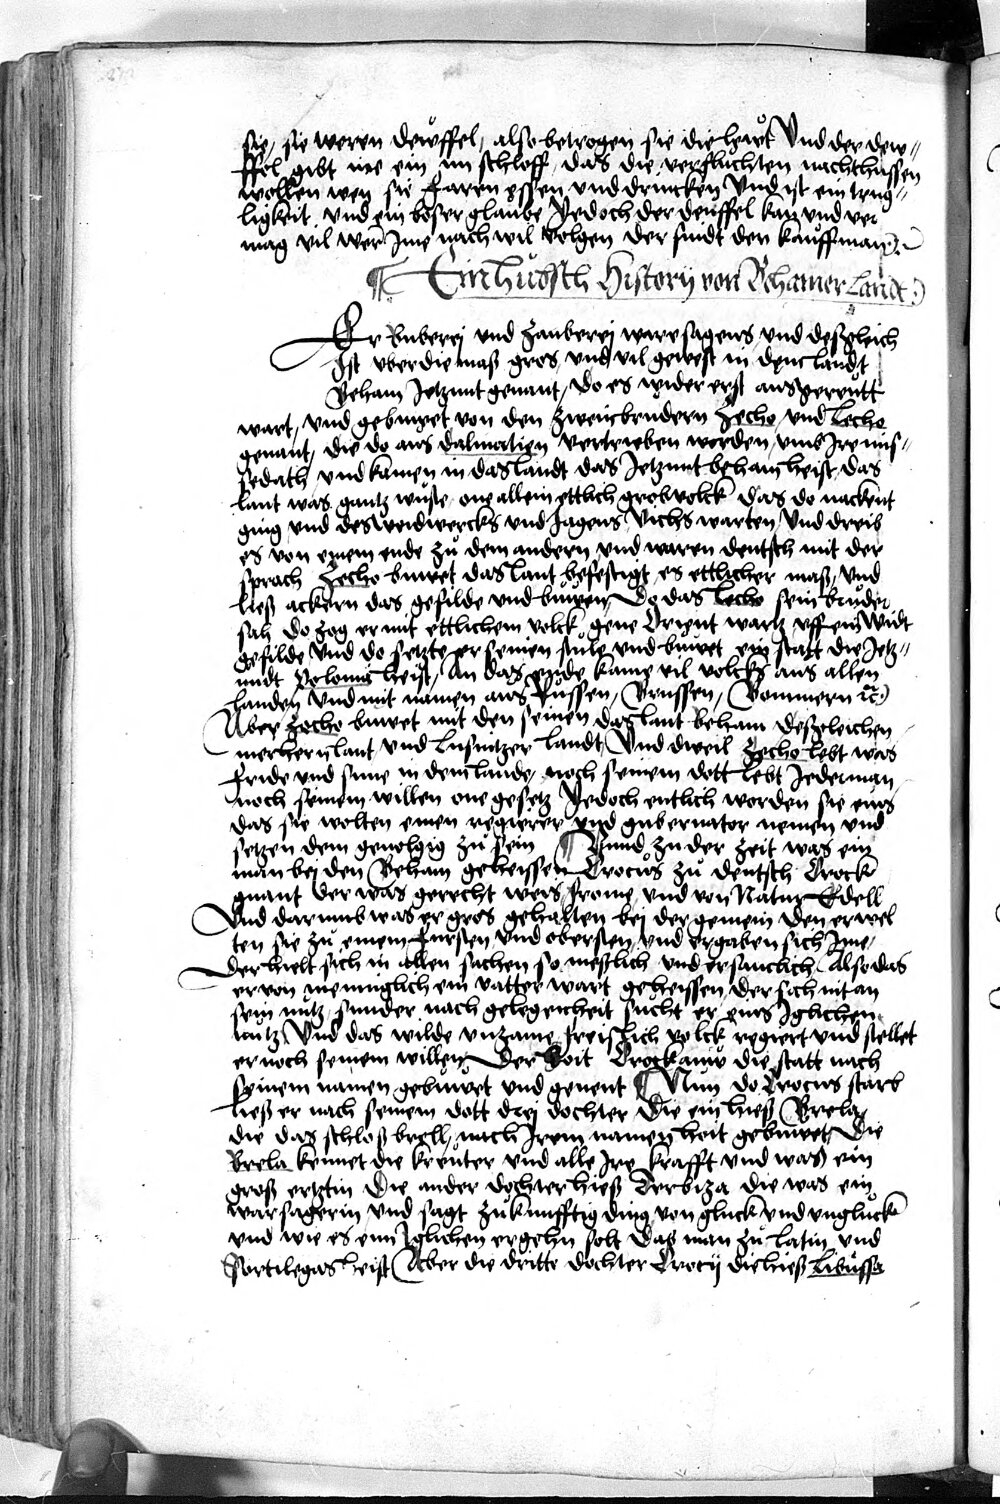 sie, sie weren deuffel, also betrogen sie die hewt Vnd der dew-
ffel gibt ine ein im schloff, das die verfluchten nachthussen
wollen wen sie faren essen vnd drincken Vnd ist ein trug-
ligkeit, vnd ein boser glaube Yedoch der deuffel kan vnd ver
mag vil wer Ime nach wil volgen der findt den kauffman
Ein hubsch History von Behamer Landt
Er buberei vnd zauberei waresagens vnd desgleich
Ist vber die maß gros vnd vil gewest in dem landt
Beham Jetzunt genant, do es wider erst ausgerrutt
wart, vnd gebuwet von den zweien brudern Zecho vnd Lecho
genant, die do aus dalmatien vertrieben worden, vmb Ire mis-
sedath, vnd kamen in das landt das Jetzunt beham heist, das
lant was gantz wuste, one allein ettlich grob volck das do nackent
ging vnd des weidwercks vnd Jagens Vichs warten Vnd dreib
es von einem ende zu dem andern, vnd waren deutsch mit der
sprach Zecho buwet das lant befestigt es ettlicher maß, vnd
ließ ackern das gefilde vnd buwen, Do das Lecho sein bruder
sah do zog er mit ettlichem volck gene Orient wartz vff ein widt
gefilde Vnd do setzte er seinen stule vnd buwet ein statt die Jetz-
undt Polonia heist, An das ende kame vil volcks aus allen
landen Vnd mit namen aus Russen, Brussen, Bommern etc
Aber Zecho buwet mit den seinen das lant beham desgleichen
merhern lant, vnd Lusnitzer landt, Vnd dweil Zecho lebt was
fride vnd sune in dem lande, noch seinem dott lebt Jederman
noch seinem willen one gesetz Yedoch entlich worden sie eins
das sie wolten einen regierer vnd gubernator nemen vnd
setzen dem gevolgig zu sein Vnnd zu der zeit was ein
man bei den Beham geheissen Crocus zu deutsch Crock
gnant der was gerecht weis, frome, vnd von Natur Edell
Vnd darumb was er gros gehalten bei der gemein den erwel
ten sie zu einem fursten, vnd obersten, vnd ergaben sich Ime,
Der hielt sich in allen sachen so meßlich vnd ersamlich Also das
er von meniglich ein vatter wart geheissen, der sich nit an
sein nutz, sunder nach gelegenheit sucht er eins Iglichen
nutz Vnd das wilde vnzame freislich volck regiert vnd stellet
er noch seinem willen Der hoit Crockaw die statt nach
seinem namen gebuwet vnd genent Nun do Crocus starb
ließ er nach seinem dott drei dochter Die ein hieß Brela,
die das schloß brell, nach Irem namen hoit gebuwet, Die
brela kennet die kreuter vnd alle Ire krafft vnd was ein
groß ertztin Die ander dochter hieß Terbiza die was ein
warsagerin vnd sagt zukunfftig ding von gluck vnd vngluck
vnd wie es eim Iglichen ergehn solt Das man zu latin vnd
Sortilegas heist Aber die dritte dochter Crocy die hieß Libussa